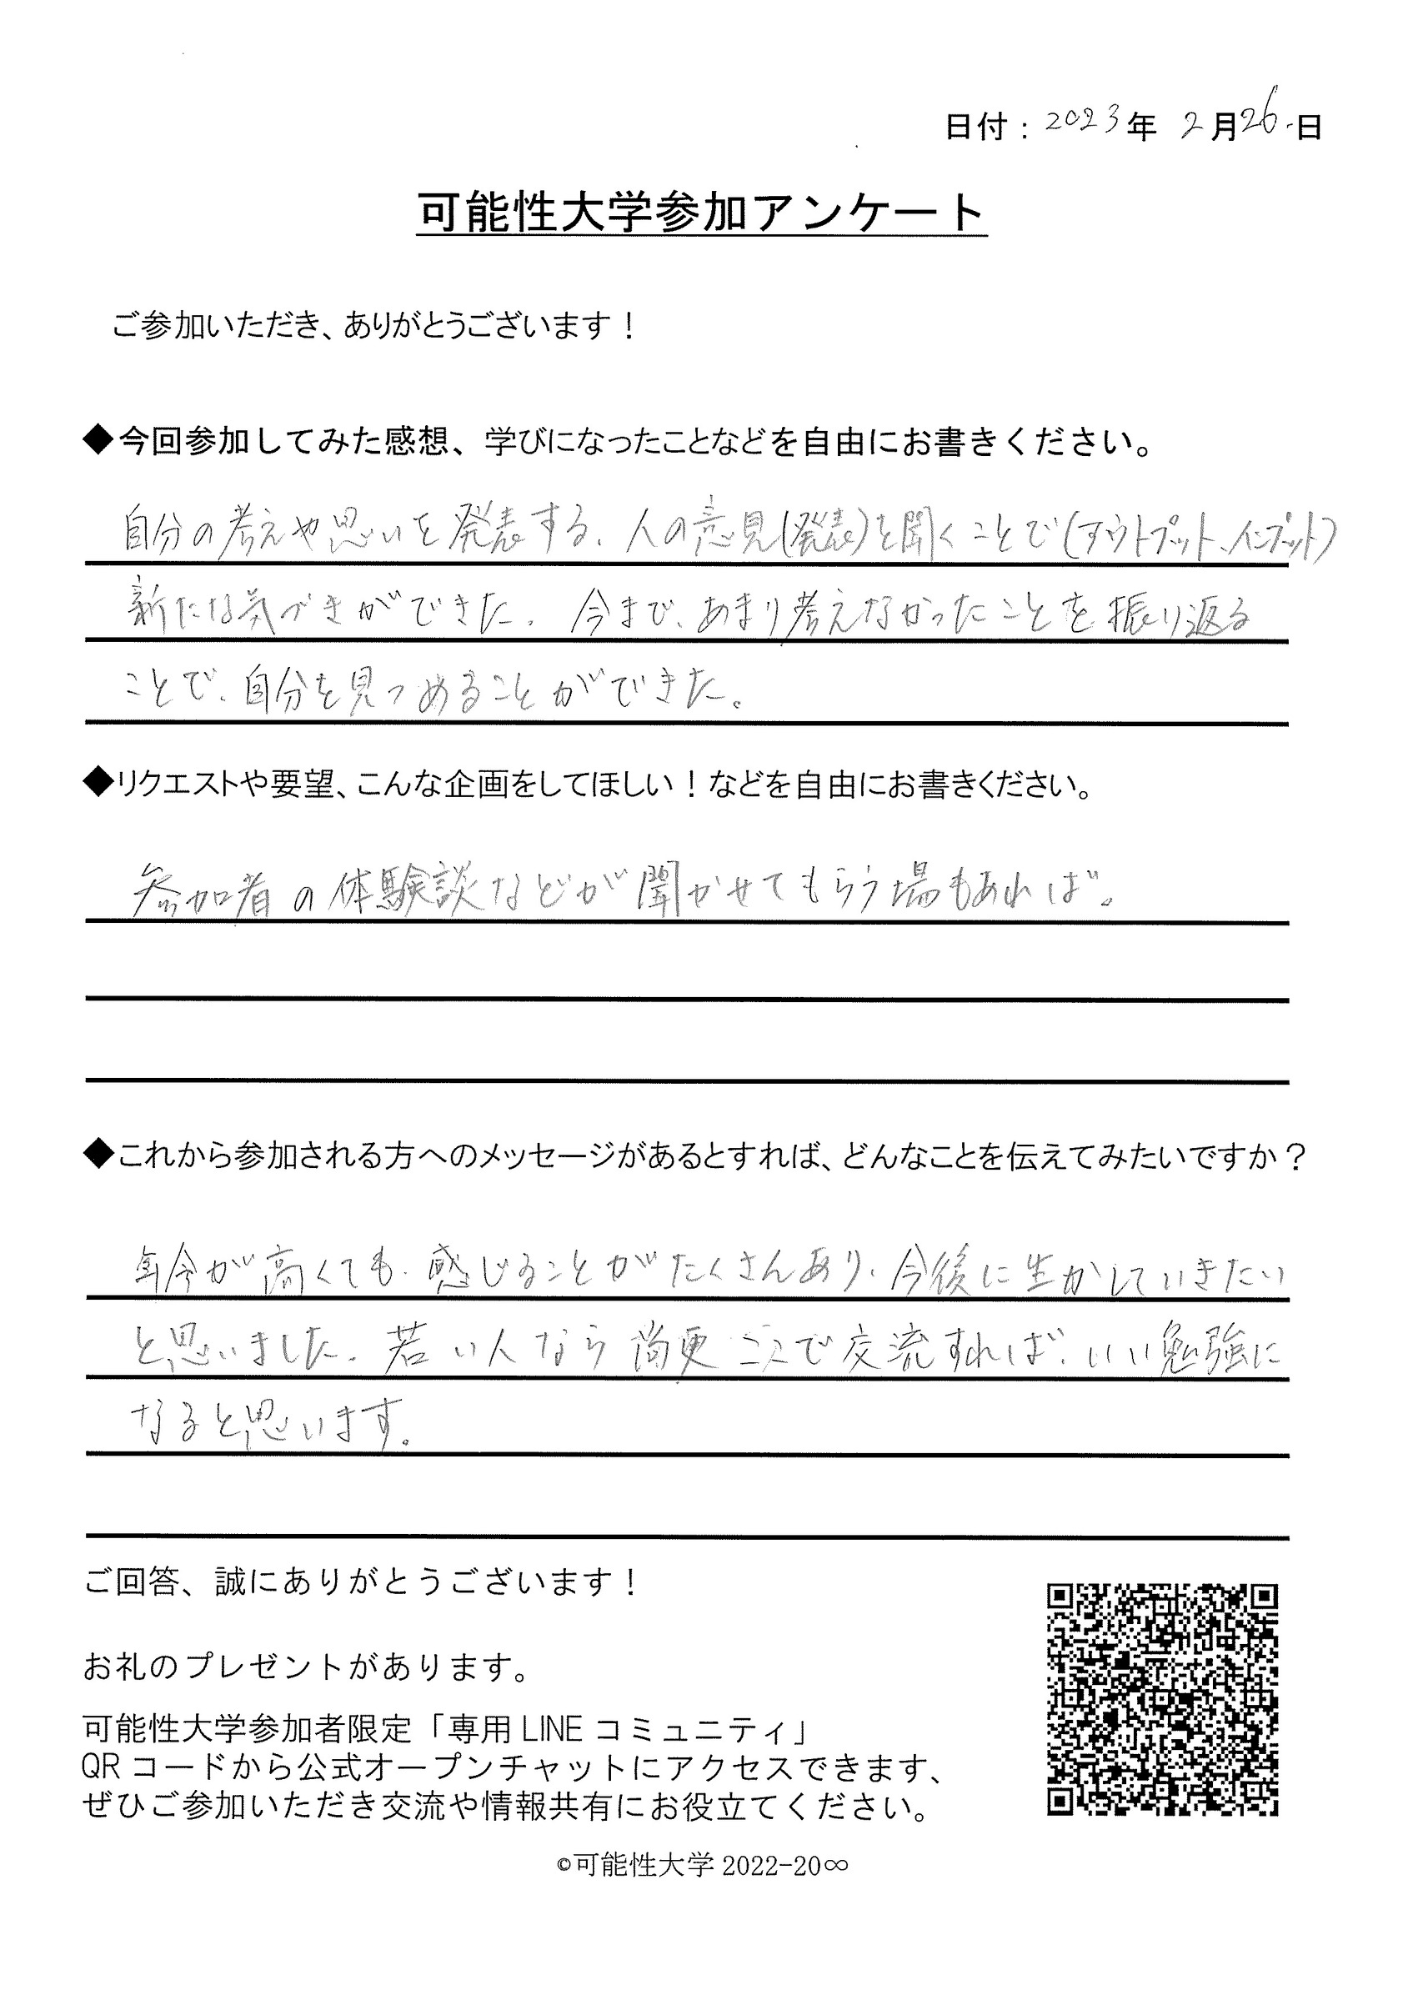 日付：2023年 2月26日
可能性大学参加アンケート
ご参加いただき、ありがとうございます！
◆今回参加してみた感想、学びになったことなどを自由にお書きください。
自分の考えや思いを発表する、人の意見(発表)を聞くことで(アウトプット、インプット)
新たな気づきができた。今まで、あまり考えなかったことを振り返る
ことで、自分を見つめることができた。
◆リクエストや要望、こんな企画をしてほしい！などを自由にお書きください。
参加者の体験談などが聞かせてもらう場もあれば。
◆これから参加される方へのメッセージがあるとすれば、どんなことを伝えてみたいですか？
年令が高くても、感じることがたくさんあり、今後に生かしていきたい
と思いました。若い人なら尚更ここで交流すれば、いい勉強に
なると思います。
ご回答、誠にありがとうございます！
お礼のプレゼントがあります。
可能性大学参加者限定「専用LINEコミュニティ」
QRコードから公式オープンチャットにアクセスできます、
ぜひご参加いただき交流や情報共有にお役立てください。
©可能性大学 2022-20∞